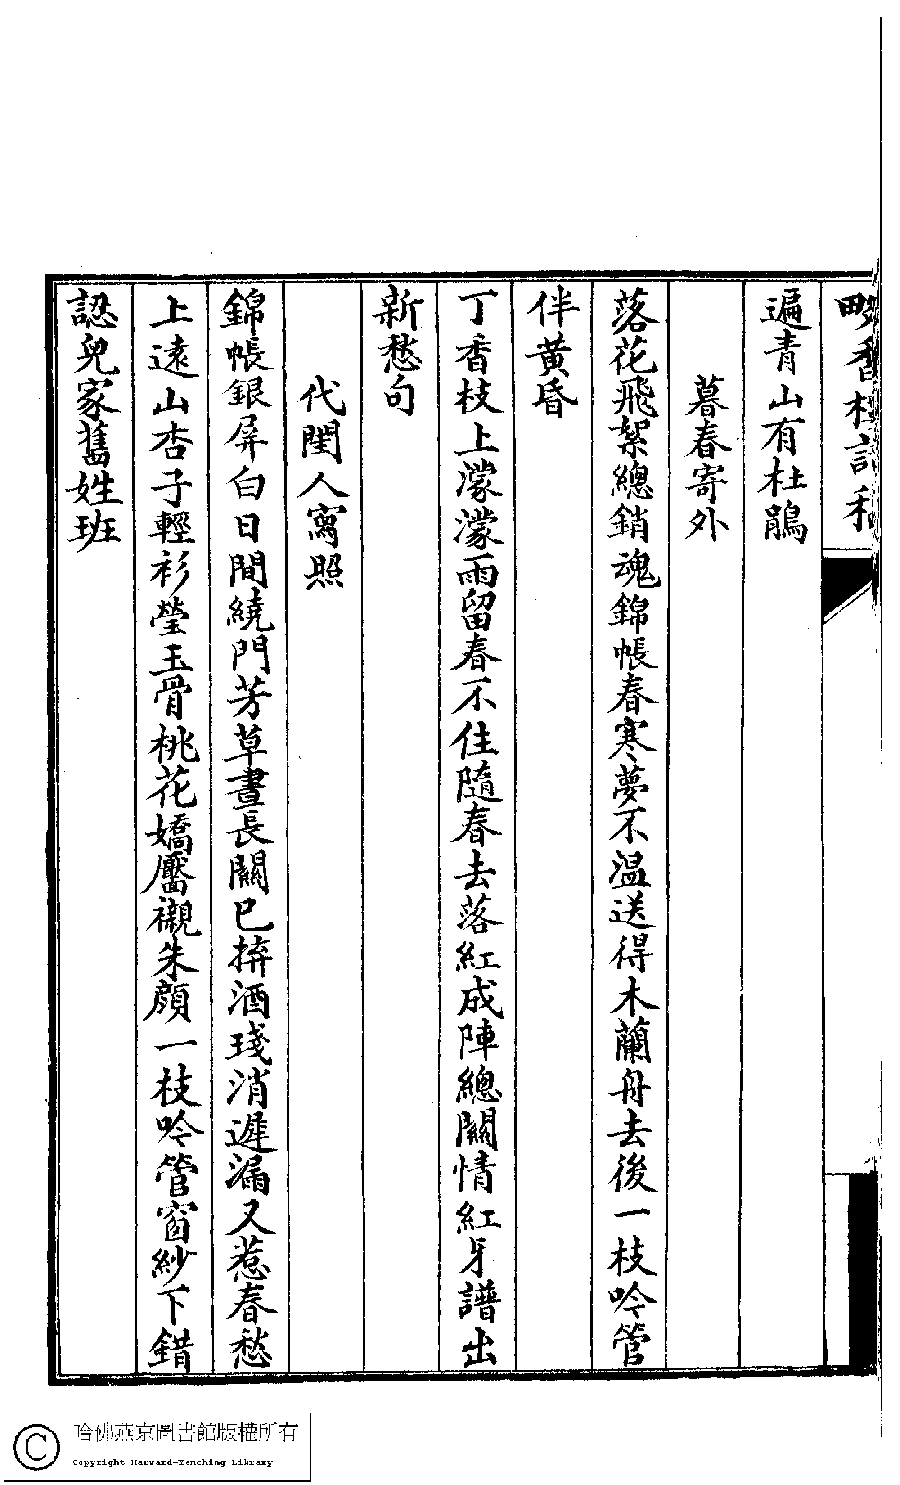 香樓詩
遍青山有杜鵑
暮春寄外
落花飛絮總銷魂錦帳春寒夢不温送得木蘭舟去後一枝吟管
伴黄昏
丁香枝上濛濛雨留春不住隨春去落紅成陣總關情紅牙譜出
新愁句
代閨人寫照
錦帳銀屏白日間繞門芳草晝長關已拚酒琖消遲漏又惹春愁
上遠山杏子輕衫瑩玉骨桃花嬌靨襯朱顏一枝吟管窗紗下錯
認兒家舊姓班
哈佛燕京圖書館版權所有
Copyright Harvard-Yenching Library